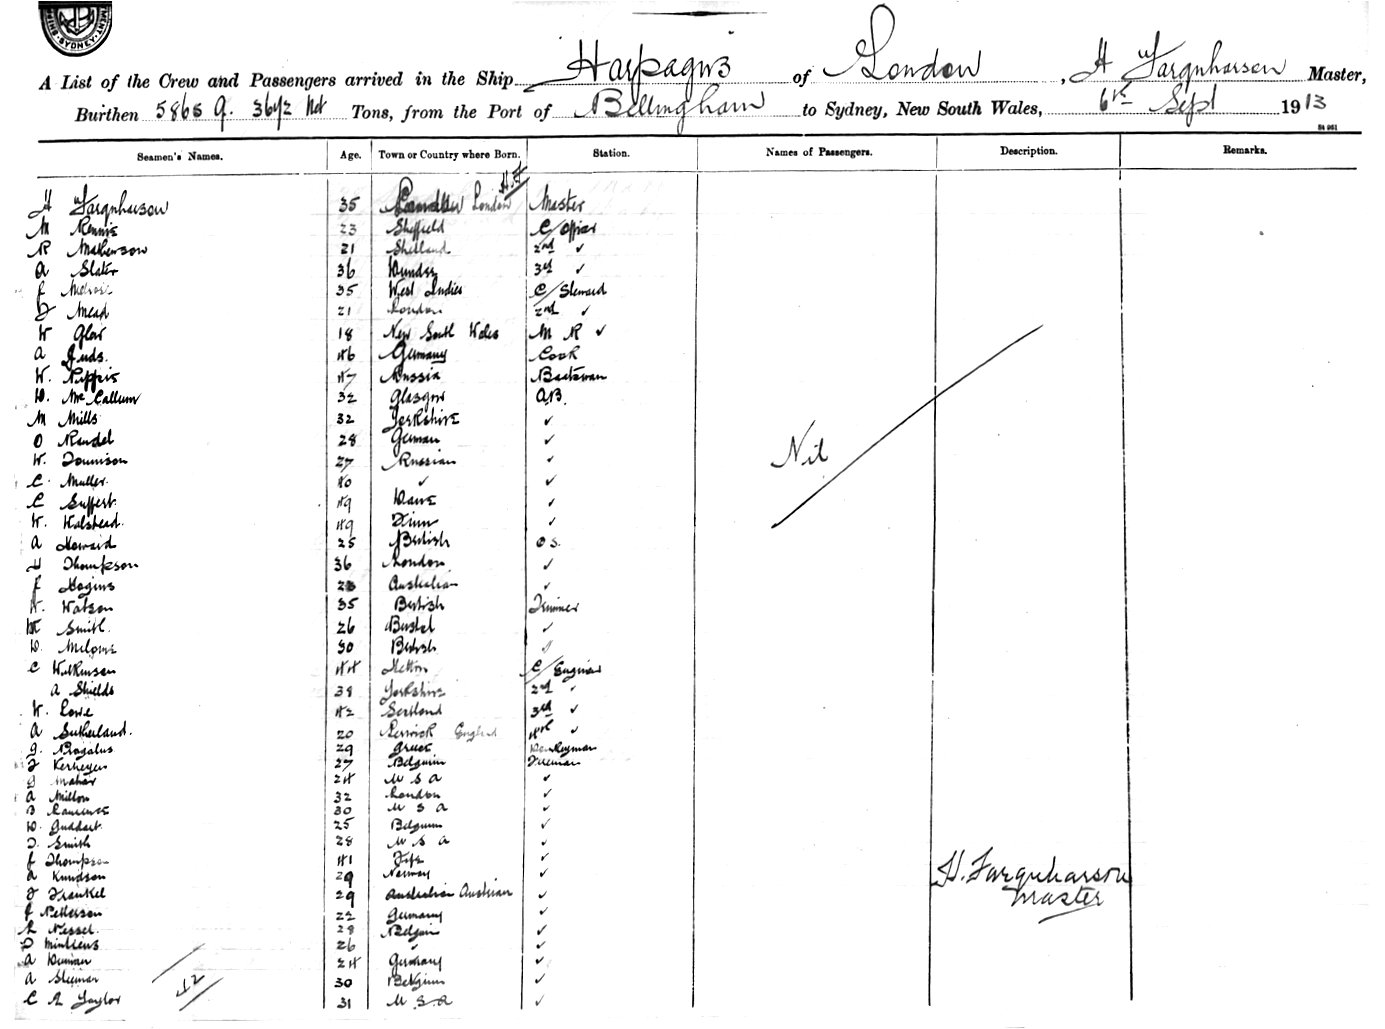 SYDNEY
A List of the Crew and Passengers arrived in the Ship Harpagus of London, H Farquharson Master,
Burthen 5865 G. 3642 Net Tons, from the Port of Bellingham to Sydney, New South Wales, 6th Sept 1913
Seamen's Names. Age. Town or Country where Born. Station. Names of Passengers. Description. Remarks.
H.F
H Farquharson 35 London Master
M Rennie 23 Sheffield C/Officer
R Mathewson 21 Shetland 2nd ✓
A Slater 36 Dundee 3rd ✓
J 35 West Indies C/Steward
F Mead 21 London 2nd ✓
W Glew 18 New South Wales M R ✓
A Juds. 46 Germany Cook
W. 47 Russia Boatswan
D. McCallum 32 Glasgow A.B.
M Mills 32 Yorkshire ✓
O Randel 28 German ✓
Nil
W. 27 Russian ✓
C. Muller. 40 ✓ ✓
C Suffert. 49 Dane ✓
W. Halstead. 49 Finn ✓
A Howard 25 British O S.
H Thompson 36 London ✓
J Hogins 23 Australian ✓
W. Watson 35 British Trimmer
W Smith. 26 Bristol ✓
D. 30 British
C Wilkinson 44 C/Engineer
A Shields 38 Yorkshire 2nd ✓
W. Lowe 42 Scotland 3rd ✓
A Sutherland. 20 Berwick England 4th ✓
G. Rogalus 29 Greece Donkeyman
F Kerheyen 27 Belguim Fireman
Mahar 24 U S A ✓
A Milton 32 London ✓
B 30 U S A ✓
W. Guddart 25 Belguim ✓
J. Smith 28 U S A ✓
J Thompson 41 Fife ✓
A Knudson 29 Norway ✓
H. Farquharson
F Frankel 29 Australian Austrian ✓
Master
J Petterson 22 Germany ✓
Nessel. 28 Belguim ✓
26 ✓ ✓
A 24 Germany ✓
A 30 Belgium ✓
42
C A Taylor 31 U.S.A ✓